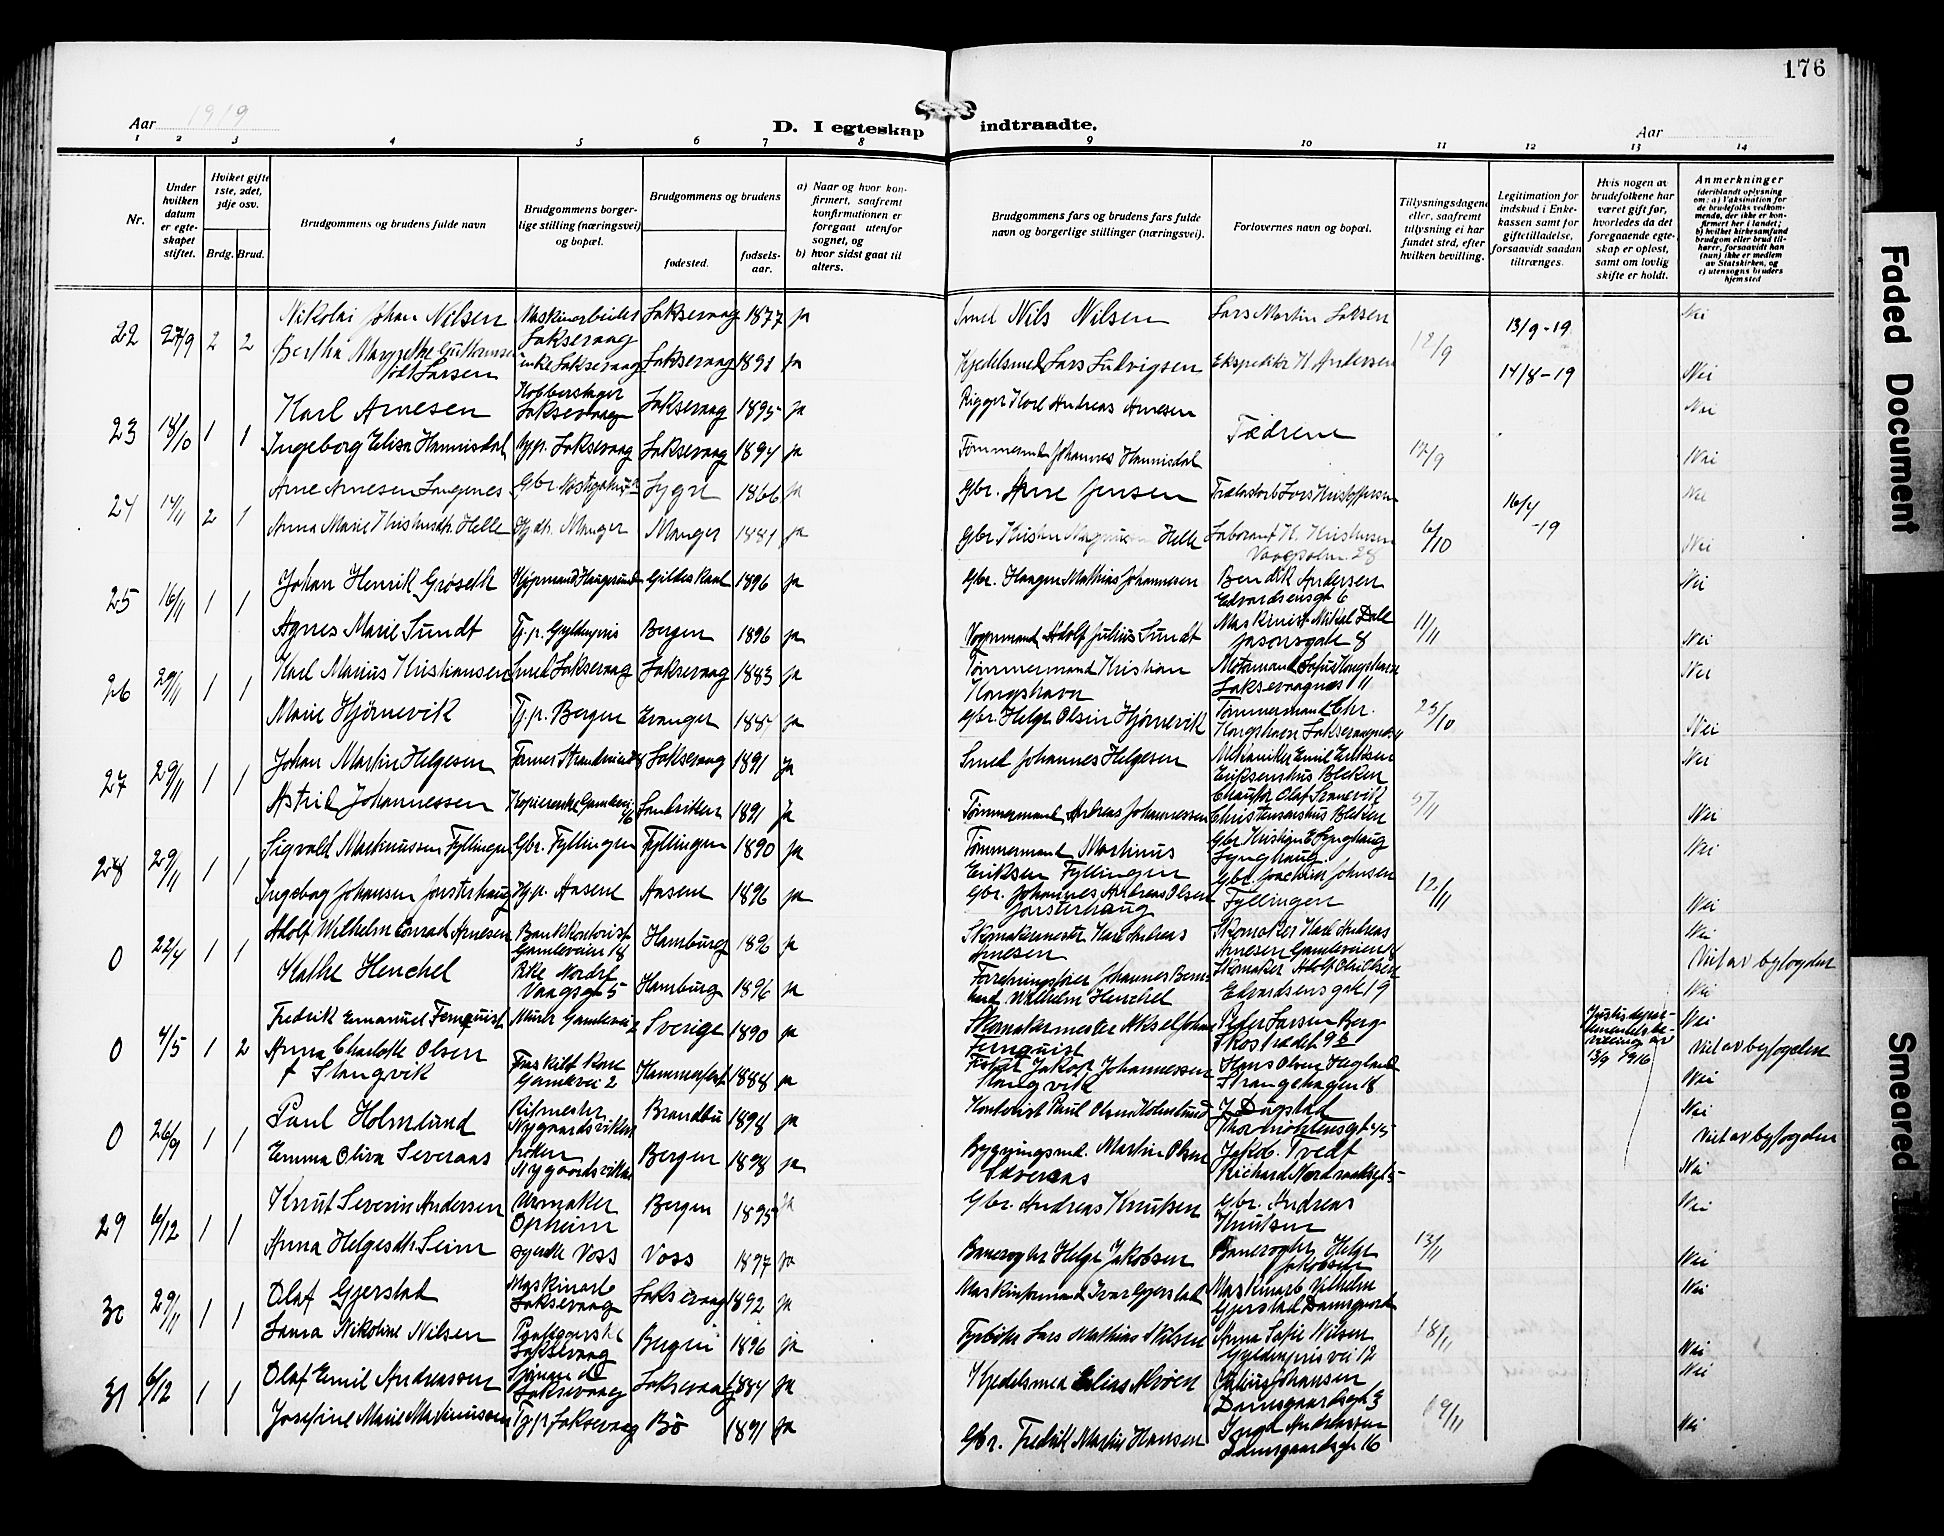 176
Aar 1919
D. I egteskap indtraadte.
Aar
1 2 3 4 5 6 7 8 9 10 11 12 13 14
Nr.
Under hvilken datum er egteskapet stiftet.
Hviket gifte 1ste, 2det, 3dje osv.
Brdg. Brud.
Brudgommens og brudens fulde navn
Brudgommens borgerlige stilling (næringsvei) og bopæl.
Brudgommens og brudens
fødested.
fødselsaar.
a) Naar og hvor konfirmert, saafremt konfirmationen er foregaat utenfor sognet, og
b) hvor sidst gaat til alters.
Brudgommens fars og brudens fars fulde navn og borgerlige stillinger (næringsvei).
Forlovernes navn og bopæl.
Tillysningsdagene eller, saafremt tillysning ei har fundet sted, efter hvilken bevilling.
Legitimation for indskud i Enkekassen samt for giftetilladelse, forsaavidt saadan tiltrænges.
Hvis nogen av brudefolkene har været gift før, hvorledes da det foregaaende egteskap er opløst, samt om lovlig skifte er holdt.
Anmerkninger
(deriblandt oplysning om: a) Vaksination for de brudefolks vedkommende, der ikke er konfirmert her i landet; b) hvilket kirkesamfund brudgom eller brud tilhører, forsaavidt han (hun) ikke er medlem av Statskirken, og c) utensogns bruders hjemsted
22 27/9 2 2 Nikolai Johan Nilsen Maskinarbeider Laksevaag Laksevaag 1877 ja Smed Nils Nilsen Lars Martin Larsen 12/9 13/9-19 Nei
Bertha Margrethe født Larsen enke Laksevaag Laksevaag 1891 ja Kjedelsmed Lars Ludvigsen Ekspeditør H Andersen 14/8-19 Nei
23 18/10 1 1 Karl Arnesen Kobberslager Laksevaag Laksevaag 1895 ja Rigger Karl Andreas Arnesen Fædrene 12/9 Nei
Ingeborg Elisa Hannisdal Laksevaag Laksevaag 1894 ja Tømmermand Johannes Hannisdal Nei
24 14/11 2 1 Arne Arnesen Langenes Gbr. Lygre 1866 ja Gbr. Arne Jensen Lars Kristoffersen 6/10 16/4-19 Nei
Anna Marie Kristensdtr. Helle Manger Manger 1881 ja Gbr. Kristen Helle Laborant K. Kristensen 28 Nei
25 16/11 1 1 Johan Henrik Grøseth Kjøpmand Haugesund Gildeskaal 1896 ja Gbr. Haagen Mathias Johannesen Bendik Andersen Edvardsensgt 6 11/11 Nei
Agnes Marie Sundt Tj.p. Gyldenpris Bergen 1896 ja Vognmand Adolf Julius Sundt Maskinist Mikal Dale Jasonsgate 8 Nei
26 29/11 1 1 Karl Marius Kristiansen Smed Laksevaag Laksevaag 1883 ja Tømmermand Kristian Kongshavn Laksevaagnes 11 23/10 Nei
Marie Hjørnevik Tj.p. Bergen Evanger ja Gbr. Helge Olsen Hjørnevik Tømmermand Chr. Kongshavn Nei
27 29/11 1 1 Johan Martin Helgesen Laksevaag 1891 Ja Smed Johannes Helgesen Mekaniker Emil Eriksen Eriksenshus Bleken 5/11 Nei
Astrid Johannessen 1891 Ja Tømmermand Andreas Johannessen Chauffør Olaf Christensenshus Bleken Nei
28 29/11 1 1 Sigvald Markussen Fyllingen Gbr. Fyllingen Fyllingen 1890 ja Tømmermand Martinus Eriksen Fyllingen Gbr Kristian E Lynghaug Lynghaug. 12/11 Nei
Ingeborg Johansen Tj.p. Aasene Aasene 1896 ja Gbr. Johannes Andreas Olsen Gbr. Joachim Johnsen Fyllingen Nei
0 22/4 1 1 Adolf Wilhelm Conrad Arnesen Bankkontorist Gamleveien 18 Hamburg 1896 ja Skomakermester Karl Andreas Arnesen Skomaker Karl Andreas Arnesen Gamleveien 18 Nei
Viet av byfogden
Käthe Henchel Nordre Vaagsgt 5 Hamburg 1896 ja Forretningsfører Johannes Bernhard Wilhelm Henchel Skomaker Adolf Edvardsensgate 19 Nei
0 4/5 1 2 Fredrik Emanuel Fernquist Murer Gamlevei 2 Sverige 1890 ja Skomakermester Aksel Johan Fernquist Peder Larsen Berg Skostrædet 9 Justisdepartementets bevilling av 13/9 1916 Nei
Viet av byfogden
Anna Charlotte Olsen f Slangvik Fraskilt Gamlevei 2 Hammerfest 1888 ja Fisker Jakop Johannessen Slangvik Hans Olsen Hegland Strangehagen 18 Nei
0 26/9 1 1 Paul Holmlund Rismester Nygaardsviken Brandbu 1898 ja Kontorist Paul Olsen Holmlund J Dugstad Thormøhlensgt 45 Nei
Viet av byfogden
Emma Oliva Severaas frøken Nygaardsviken Bergen 1898 ja Bygningssnd. Martin Olsen Severaas Jakob. Tvedt Richard Nordraaksgt 5 Nei
29 6/12 1 1 Knut Severin Andersen Urmaker Opheim Bergen 1895 ja Gbr. Andreas Knutsen Gbr. Andreas Knutsen 13/11 Nei
Anna Helgesdtr. Seim syerske Voss Voss 1897 ja Banevogter Helge Jakobsen Banevogter Helge Jakobsen Nei
30 29/11 1 1 Olaf Gjerstad Maskinarb Laksevaag Laksevaag 1892 ja Maskinformand Ivar Gjerstad Maskinarb Vilhelm Gjerstad Damsgaard 18/11 Nei
Laura Nikoline Nilsen Laksevaag Bergen 1896 ja Fyrbøter Lars Mathias Nilsen Anna Sofie Nilsen Gyldenprisvei 12 Nei
31 6/12 1 1 Olaf Emil Andreassen Sjømand Laksevaag Laksevaag 1884 ja Kjedelsmed Elias Alvøen Julius Johansen Damsgaardsgt 3 19/11 Nei
Josefine Marie Martinussen Tj.p. Laksevaag Bø 1891 ja Gbr. Fredrik Martin Hansen Inga Andreassen Damsgaardsgt 16 Nei
Faded Document
Smeared